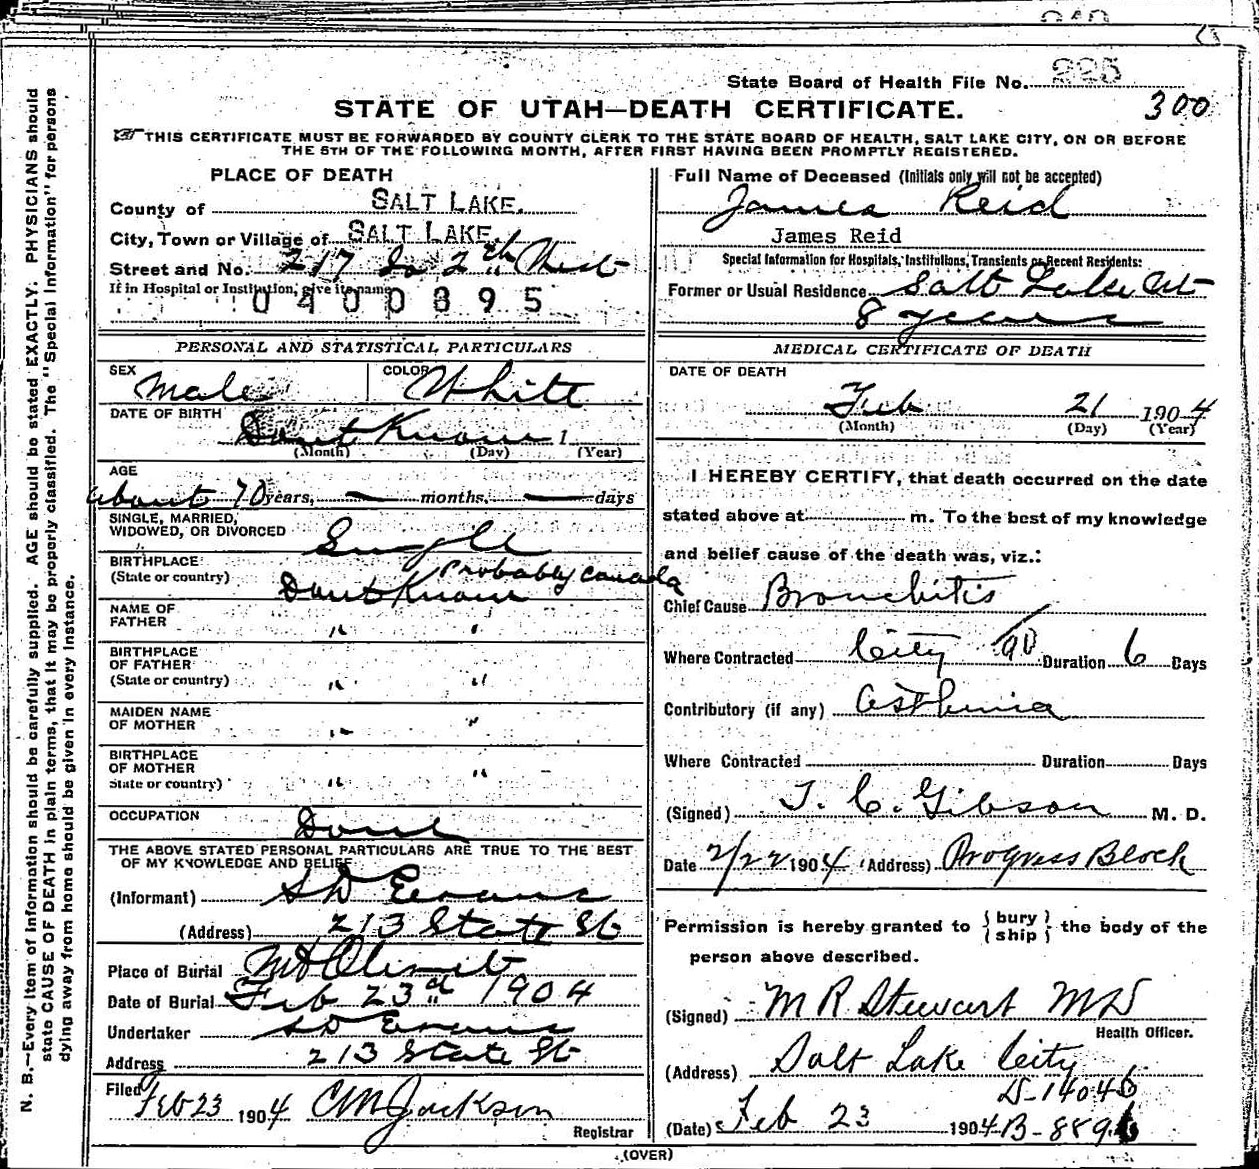 225
State Board of Health File No.
300
STATE OF UTAH—DEATH CERTIFICATE.
THIS CERTIFICATE MUST BE FORWARDED BY COUNTY CLERK TO THE STATE BOARD OF HEALTH, SALT LAKE CITY, ON OR BEFORE
THE 5TH OF THE FOLLOWING MONTH, AFTER FIRST HAVING BEEN PROMPTLY REGISTERED.
PLACE OF DEATH
County of SALT LAKE.
City, Town or Village of SALT LAKE.
Street and No. 217 So 2nd West
If in Hospital or Institution, give its name
0400895
Full Name of Deceased (Initials only will not be accepted)
James Reid
James Reid
Special Information for Hospitals, Institutions, Transients or Recent Residents:
Former or Usual Residence Salt Lake Ut
8 years
PERSONAL AND STATISTICAL PARTICULARS
SEX Male COLOR White
DATE OF BIRTH
Dont Know 1
(Month) (Day) (Year)
AGE
about 70 years, — months, — days
SINGLE, MARRIED,
WIDOWED, OR DIVORCED Single
BIRTHPLACE Probably Canada
(State or country) Dont Know
NAME OF
FATHER " "
BIRTHPLACE
OF FATHER
(State or country) " "
MAIDEN NAME
OF MOTHER " "
BIRTHPLACE
OF MOTHER
State or country) " "
OCCUPATION
THE ABOVE STATED PERSONAL PARTICULARS ARE TRUE TO THE BEST
OF MY KNOWLEDGE AND BELIEF
(Informant) S D Evans
(Address) 213 State St
Place of Burial Mt Olivet
Date of Burial Feb 23d 1904
Undertaker S D Evans
Address 213 State St
Filed Feb 23 1904 C M Jackson
Registrar
MEDICAL CERTIFICATE OF DEATH
DATE OF DEATH
Feb 21 1904
(Month) (Day) (Year)
I HEREBY CERTIFY, that death occurred on the date
stated above at m. To the best of my knowledge
and belief cause of the death was, viz.:
Chief Cause Bronchitis
90
Where Contracted City Duration 6 Days
Contributory (if any) Asthenia
Where Contracted Duration Days
(Signed) J. C. Gibson M. D.
Date 2/22 1904 (Address) Progress Block
Permission is hereby granted to (bury) (ship) the body of the
person above described.
(Signed) M R Stewart MD
Health Officer.
(Address) Salt Lake City
D-14046
(Date) Feb 23 1904 B-8896
(OVER)
N. B.—Every item of information should be carefully supplied. AGE should be stated EXACTLY. PHYSICIANS should
state CAUSE OF DEATH in plain terms, that it may be properly classified. The "Special Information" for persons
dying away from home should be given in every instance.